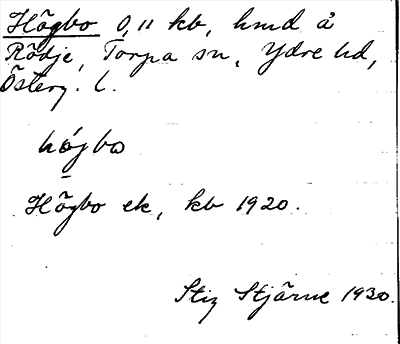 Högbo 0,11 kb, hmd å
Rödje, Torpa sn, Ydre hd,
Österg. l.
högbo
Högbo ek, kb 1920.
Stig Stjärne 1930.